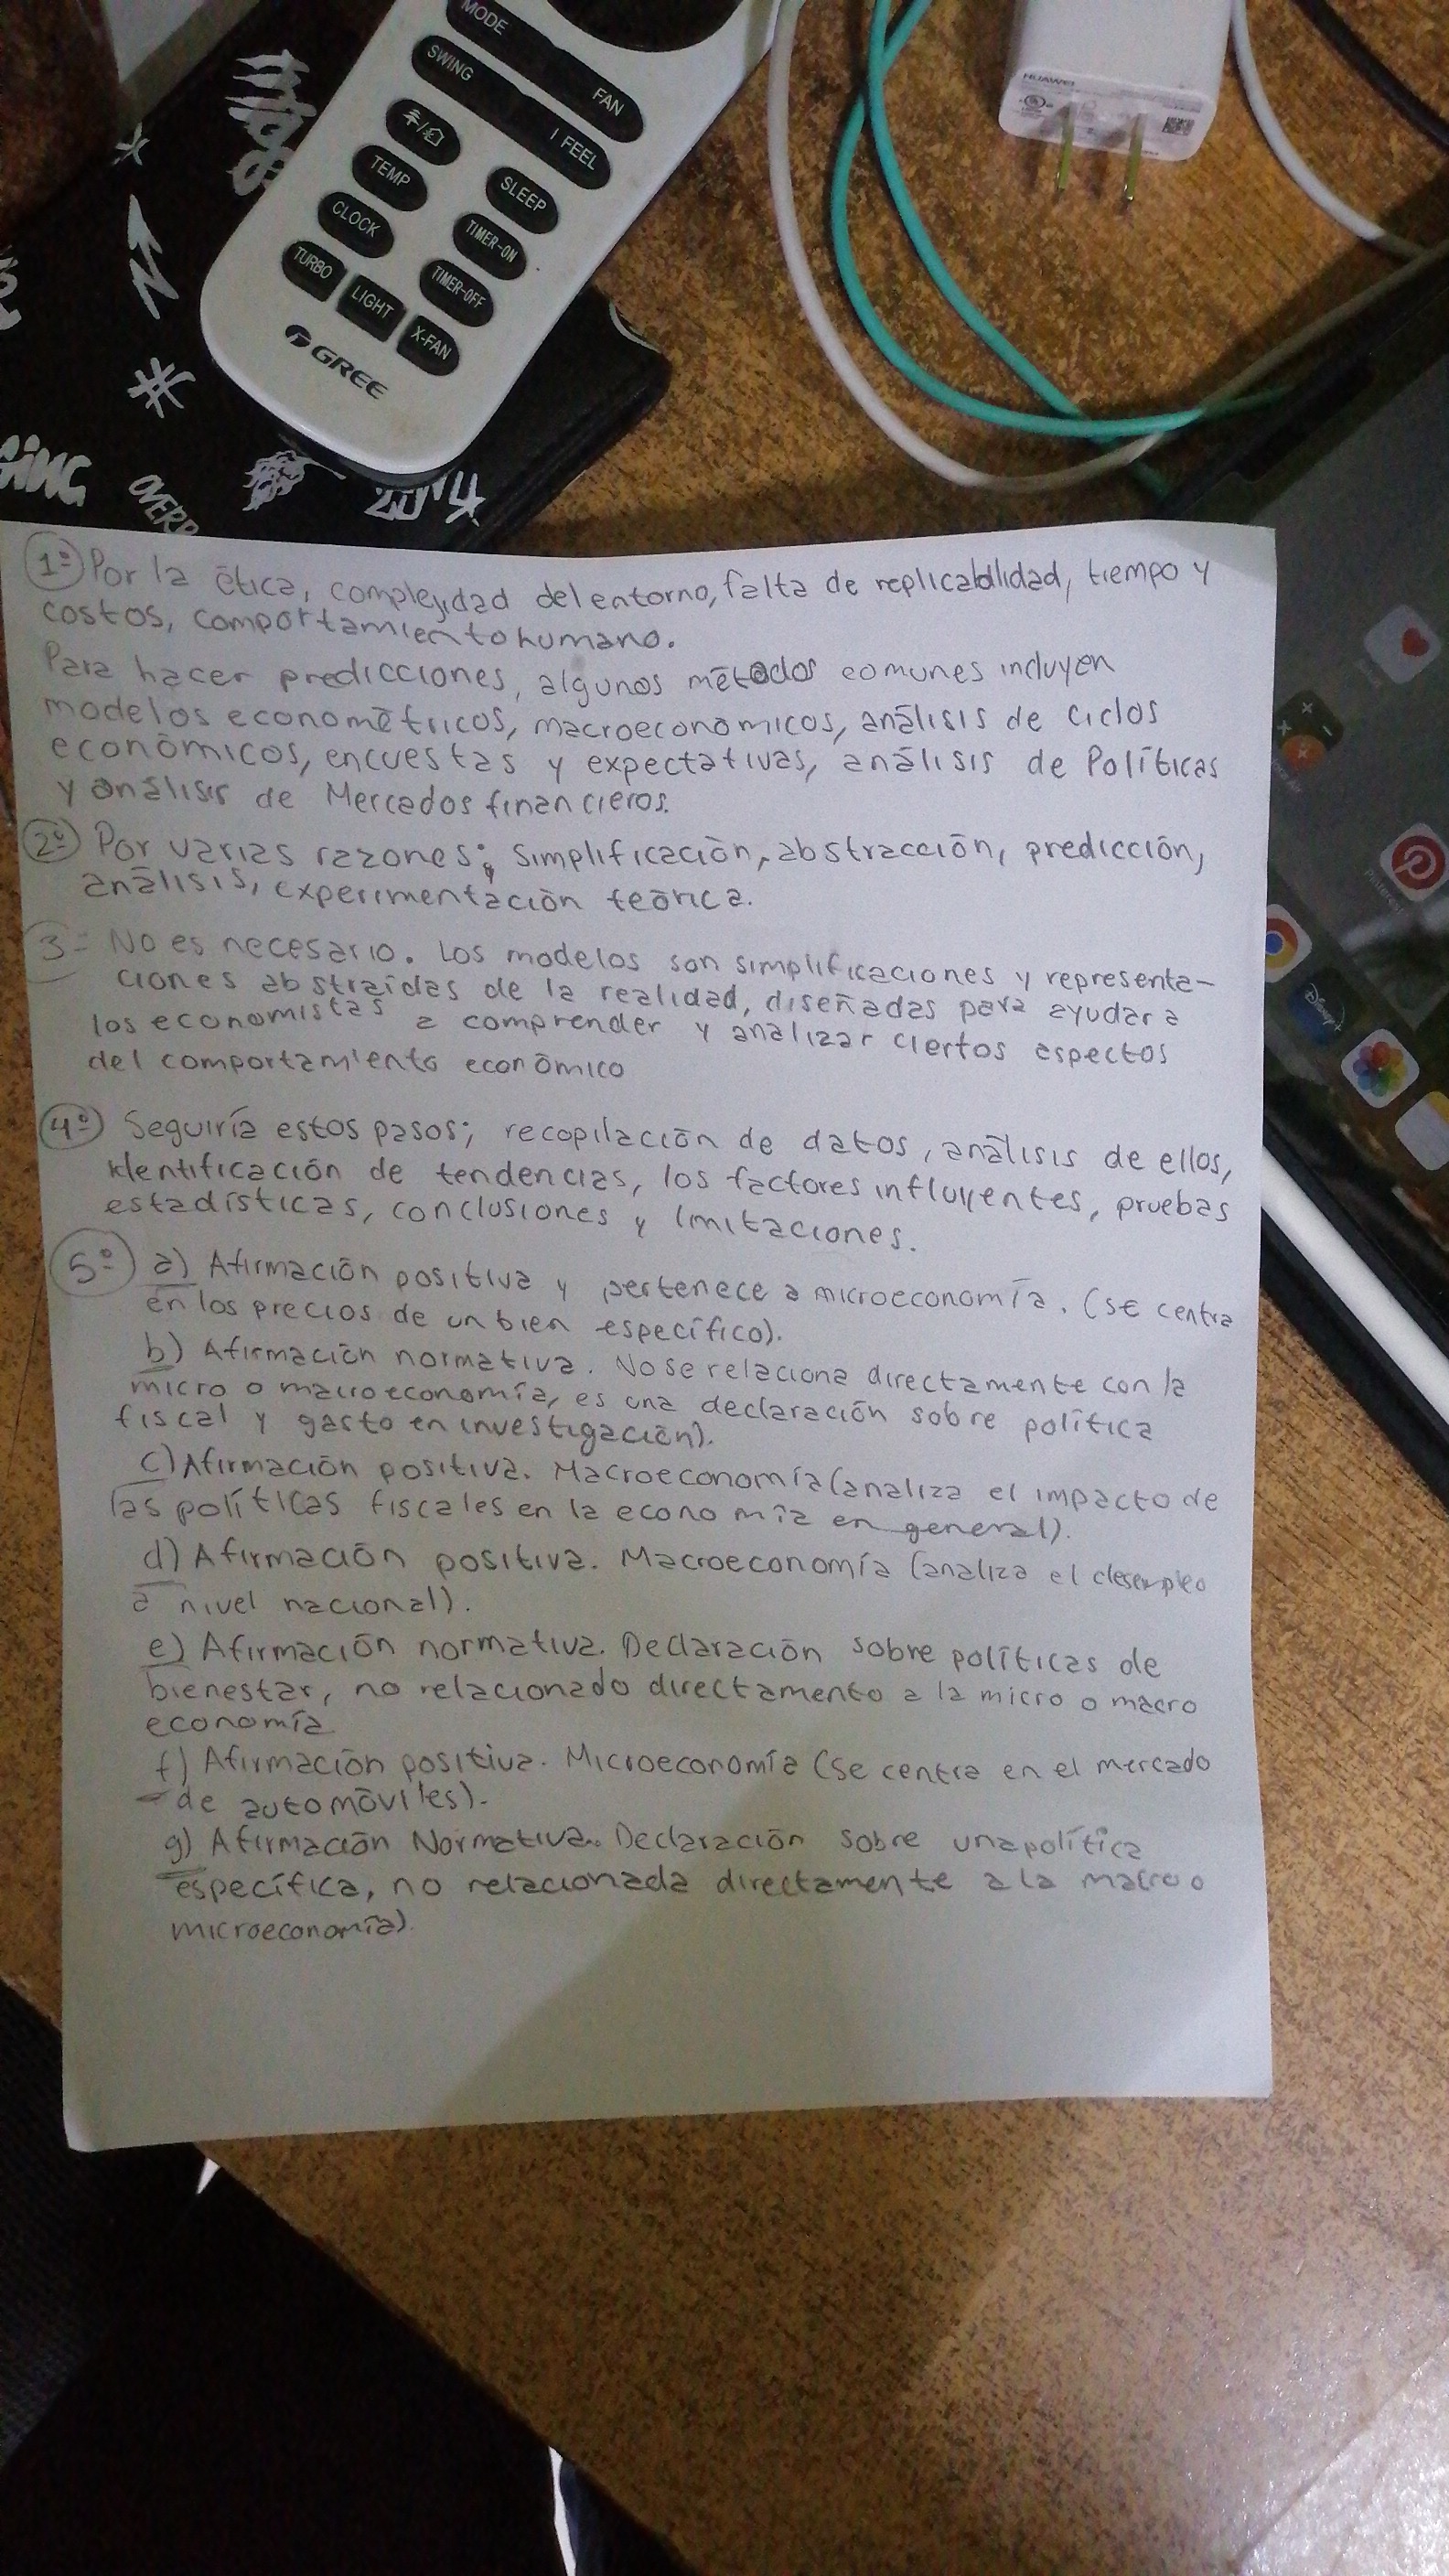 MODE
FAN
SWING
I FEEL
TEMP
SLEEP
CLOCK
TIMER-ON
TURBO
TIMER-OFF
LIGHT
X-FAN
GREE
HUAWEI
OVERD
1º Por la ética, complejidad del entorno, falta de replicabilidad, tiempo y
costos, comportamiento humano.
Para hacer predicciones, algunos métodos comunes incluyen
modelos econométricos, macroeconomicos, análisis de ciclos
económicos, encuestas y expectativas, análisis de Políticas
y análisis de Mercados financieros.
2º Por varias razones; simplificación, abstracción, predicción,
análisis, experimentación teórica.
3- No es necesario. Los modelos son simplificaciones y representa-
ciones abstraídas de la realidad, diseñadas para ayudar a
los economistas a comprender y analizar ciertos aspectos
del comportamiento económico
4º Seguiría estos pasos; recopilación de datos, análisis de ellos,
identificación de tendencias, los factores influyentes, pruebas
estadísticas, conclusiones y limitaciones.
5º a) Afirmación positiva y pertenece a microeconomía. (se centra
en los precios de un bien específico).
b) Afirmación normativa. No se relaciona directamente con la
micro o macroeconomía, es una declaración sobre política
fiscal y gasto en investigación).
c) Afirmación positiva. Macroeconomía (analiza el impacto de
las políticas fiscales en la economía en general).
d) Afirmación positiva. Macroeconomía (analiza el desempleo
a nivel nacional).
e) Afirmación normativa. Declaración sobre políticas de
bienestar, no relacionado directamento a la micro o macro
economía
f) Afirmación positiva. Microeconomía (se centra en el mercado
de automóviles).
g) Afirmación Normativa. Declaración sobre una política
específica, no relacionada directamente a la macro o
microeconomía).
Pinterest
Disney+